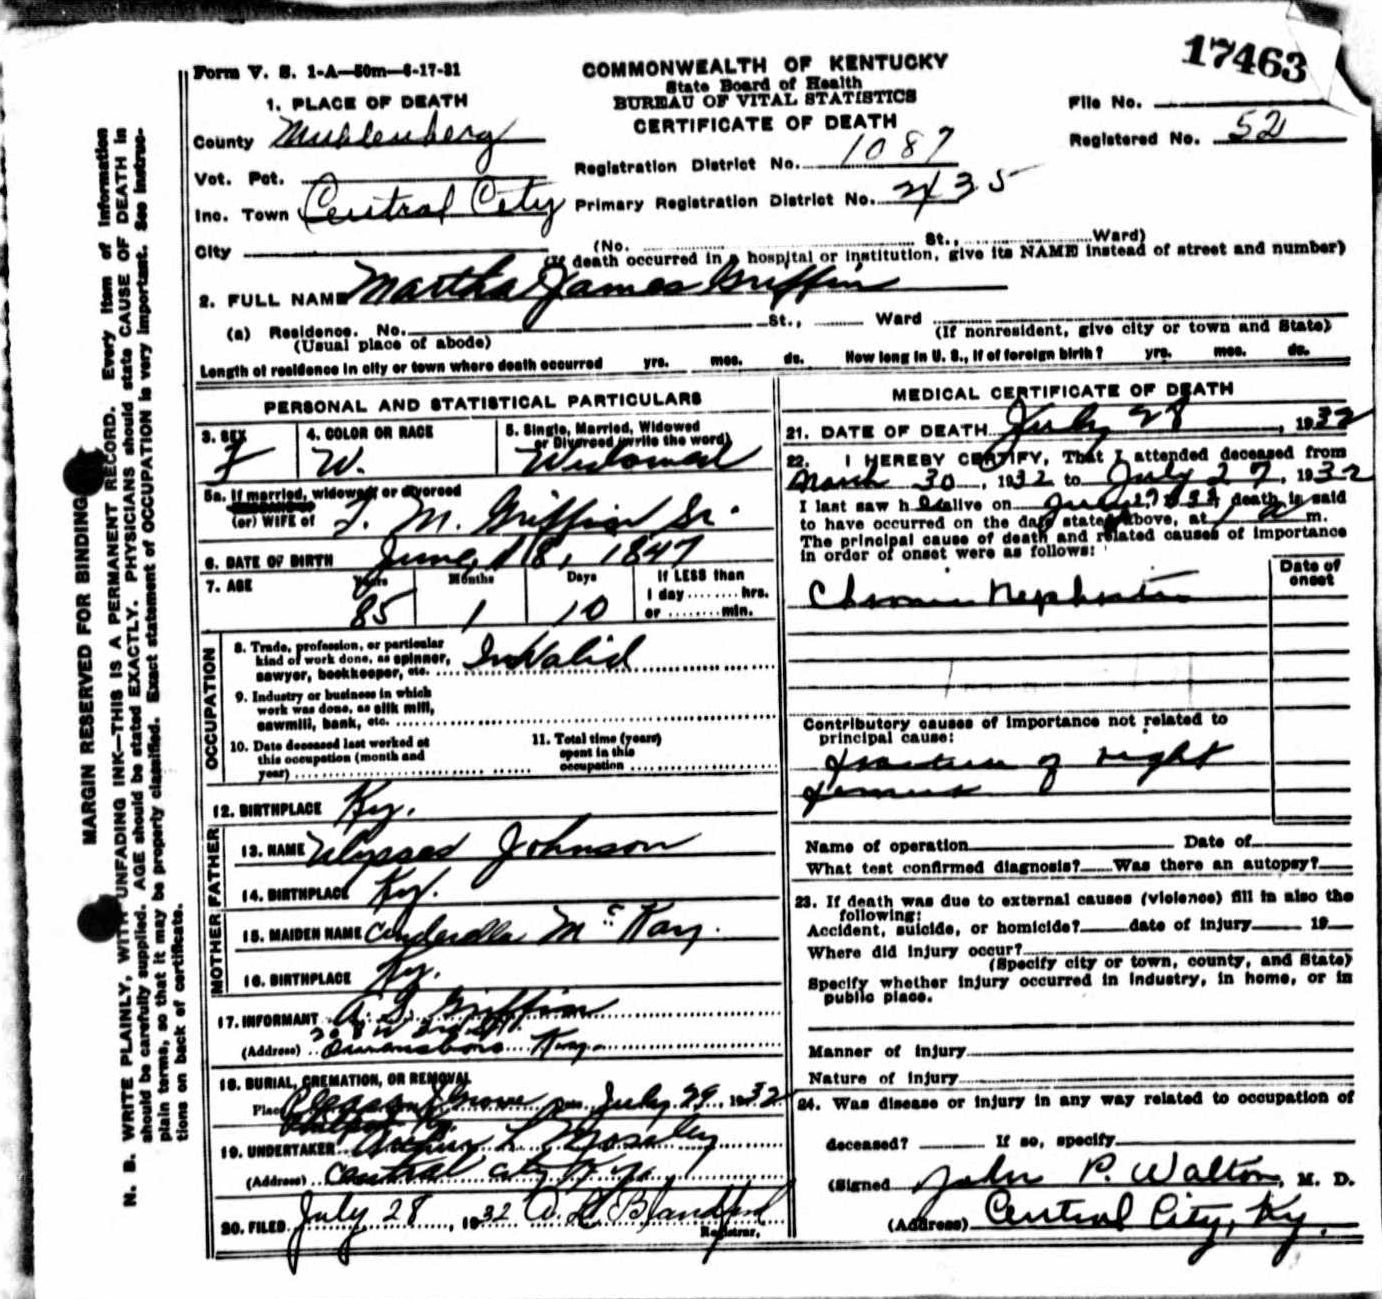 17463
Form V. S. 1-A—50m—6-17-31
COMMONWEALTH OF KENTUCKY
State Board of Health
BUREAU OF VITAL STATISTICS
CERTIFICATE OF DEATH
File No.
Registered No. 52
1. PLACE OF DEATH
County Muhlenberg
Vot. Pct.
Inc. Town Central City
City
Registration District No. 1087
Primary Registration District No. 2435
(No. St., Ward)
(If death occurred in a hospital or institution, give its NAME instead of street and number)
2. FULL NAME Martha James Griffin
(a) Residence. No. St., Ward
(Usual place of abode) (If nonresident, give city or town and State)
Length of residence in city or town where death occurred yrs. mos. ds. How long in U. S., if of foreign birth? yrs. mos. ds.
PERSONAL AND STATISTICAL PARTICULARS
3. SEX F
4. COLOR OR RACE W.
5. Single, Married, Widowed
or Divorced (write the word)
Widowed
5a. If married, widowed or divorced
(or) WIFE of F. M. Griffin Sr.
6. DATE OF BIRTH June, 18, 1847
7. AGE Years 85 Months 1 Days 10 If LESS than
1 day ........ hrs.
or ........ min.
OCCUPATION
8. Trade, profession, or particular
kind of work done, as spinner,
sawyer, bookkeeper, etc. Invalid
9. Industry or business in which
work was done, as silk mill,
sawmill, bank, etc.
10. Date deceased last worked at
this occupation (month and
year)
11. Total time (years)
spent in this
occupation
12. BIRTHPLACE Ky.
FATHER
13. NAME Ulysses Johnson
14. BIRTHPLACE Ky.
MOTHER
15. MAIDEN NAME Cinderella McKay.
16. BIRTHPLACE Ky.
17. INFORMANT A. L. Griffin
(Address) Owensboro Ky.
18. BURIAL, CREMATION, OR REMOVAL
Place Pleasant Grove Date July 29, 1932
19. UNDERTAKER Arthur L. Mosley
(Address) Central City Ky.
20. FILED July 28, 1932 W. L. Blandford
Registrar.
MEDICAL CERTIFICATE OF DEATH
21. DATE OF DEATH July 28, 1932
22. I HEREBY CERTIFY, That I attended deceased from
March 30, 1932 to July 27, 1932
I last saw h er alive on July 27 1932, death is said
to have occurred on the date stated above, at 1 a m.
The principal cause of death and related causes of importance
in order of onset were as follows:
Date of
onset
Chronic Nephritis
Contributory causes of importance not related to
principal cause:
Fracture of right
femur
Name of operation Date of
What test confirmed diagnosis? Was there an autopsy?
23. If death was due to external causes (violence) fill in also the
following:
Accident, suicide, or homicide? date of injury 19
Where did injury occur?
(Specify city or town, county, and State)
Specify whether injury occurred in industry, in home, or in
public place.
Manner of injury
Nature of injury
24. Was disease or injury in any way related to occupation of
deceased? If so, specify
(Signed John P. Walton, M. D.
(Address) Central City, Ky.
MARGIN RESERVED FOR BINDING
N. B. WRITE PLAINLY, WITH UNFADING INK—THIS IS A PERMANENT RECORD. Every item of information
should be carefully supplied. AGE should be stated EXACTLY. PHYSICIANS should state CAUSE OF DEATH in
plain terms, so that it may be properly classified. Exact statement of OCCUPATION is very important. See instruc-
tions on back of certificate.